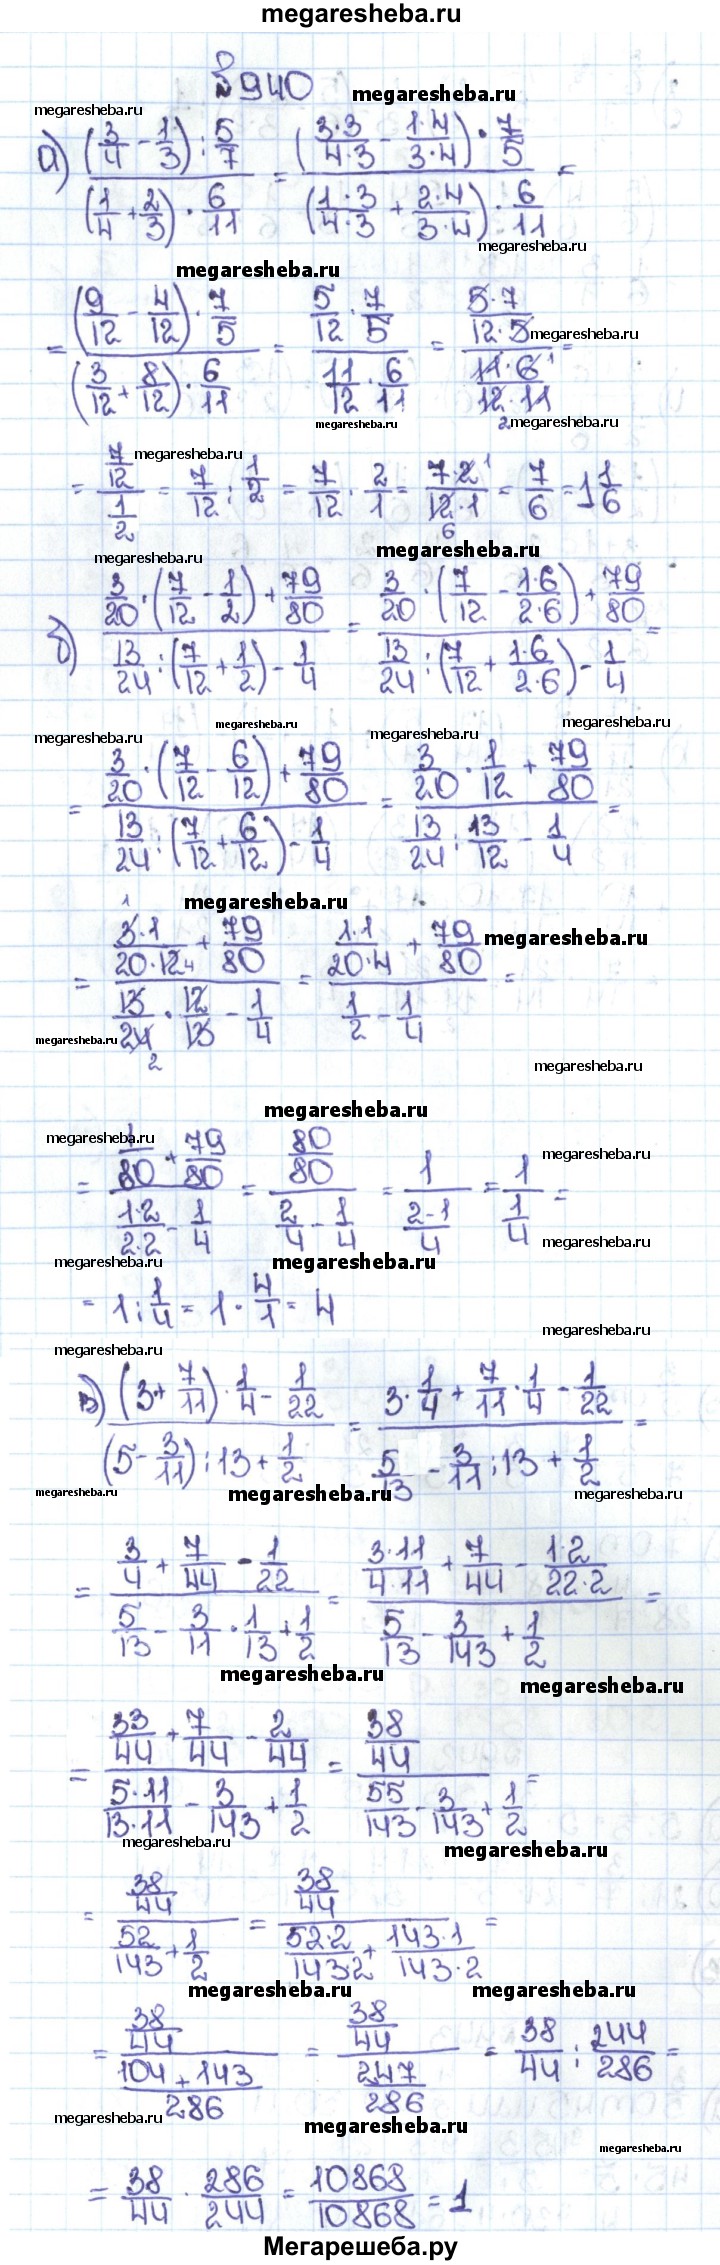 megaresheba.ru
№ 940
megaresheba.ru megaresheba.ru
а) ((3/4 - 1/3) : 5/7)/((1/4 + 2/3) · 6/11) = ((3·3/4·3 - 1·4/3·4) · 7/5)/((1·3/4·3 + 2·4/3·4) · 6/11) =
megaresheba.ru
megaresheba.ru
= ((9/12 - 4/12) · 7/5)/((3/12 + 8/12) · 6/11) = (5/12 · 7/5)/(11/12 · 6/11) = (5·7/12·5)/(11·6/12·11) =
megaresheba.ru
megaresheba.ru megaresheba.ru
megaresheba.ru
= (7/12)/(1/2) = 7/12 : 1/2 = 7/12 · 2/1 = 7·2/12·1 = 7/6 = 1 1/6
megaresheba.ru megaresheba.ru
б) (3/20 · (7/12 - 1/2) + 79/80)/(13/24 : (7/12 + 1/2) - 1/4) = (3/20 · (7/12 - 1·6/2·6) + 79/80)/(13/24 : (7/12 + 1·6/2·6) - 1/4) =
megaresheba.ru megaresheba.ru megaresheba.ru megaresheba.ru
= (3/20 · (7/12 - 6/12) + 79/80)/(13/24 : (7/12 + 6/12) - 1/4) = (3/20 · 1/12 + 79/80)/(13/24 : 13/12 - 1/4) =
megaresheba.ru
= (3·1/20·12 + 79/80)/(13/24 · 12/13 - 1/4) = (1·1/20·4 + 79/80)/(1/2 - 1/4) =
megaresheba.ru
megaresheba.ru megaresheba.ru
megaresheba.ru
megaresheba.ru megaresheba.ru
= (1/80 + 79/80)/(1·2/2·2 - 1/4) = (80/80)/(2/4 - 1/4) = 1/((2-1)/4) = 1/(1/4) =
megaresheba.ru megaresheba.ru megaresheba.ru
= 1 : 1/4 = 1 · 4/1 = 4
megaresheba.ru
megaresheba.ru
в) ((3 + 7/11) · 1/4 - 1/22)/((5 - 3/11) : 13 + 1/2) = (3 · 1/4 + 7/11 · 1/4 - 1/22)/(5/13 - 3/11 : 13 + 1/2) =
megaresheba.ru megaresheba.ru megaresheba.ru
= (3/4 + 7/44 - 1/22)/(5/13 - 3/11 · 1/13 + 1/2) = (3·11/4·11 + 7/44 - 1·2/22·2)/(5/13 - 3/143 + 1/2) =
megaresheba.ru megaresheba.ru
= (33/44 + 7/44 - 2/44)/(5·11/13·11 - 3/143 + 1/2) = (38/44)/(55/143 - 3/143 + 1/2) =
megaresheba.ru megaresheba.ru
= (38/44)/(52/143 + 1/2) = (38/44)/(52·2/143·2 + 143·1/143·2) =
megaresheba.ru megaresheba.ru
= (38/44)/((104 + 143)/286) = (38/44)/(247/286) = 38/44 : 244/286 =
megaresheba.ru megaresheba.ru megaresheba.ru
= 38/44 · 286/244 = 10868/10868 = 1
Мегарешеба.ру